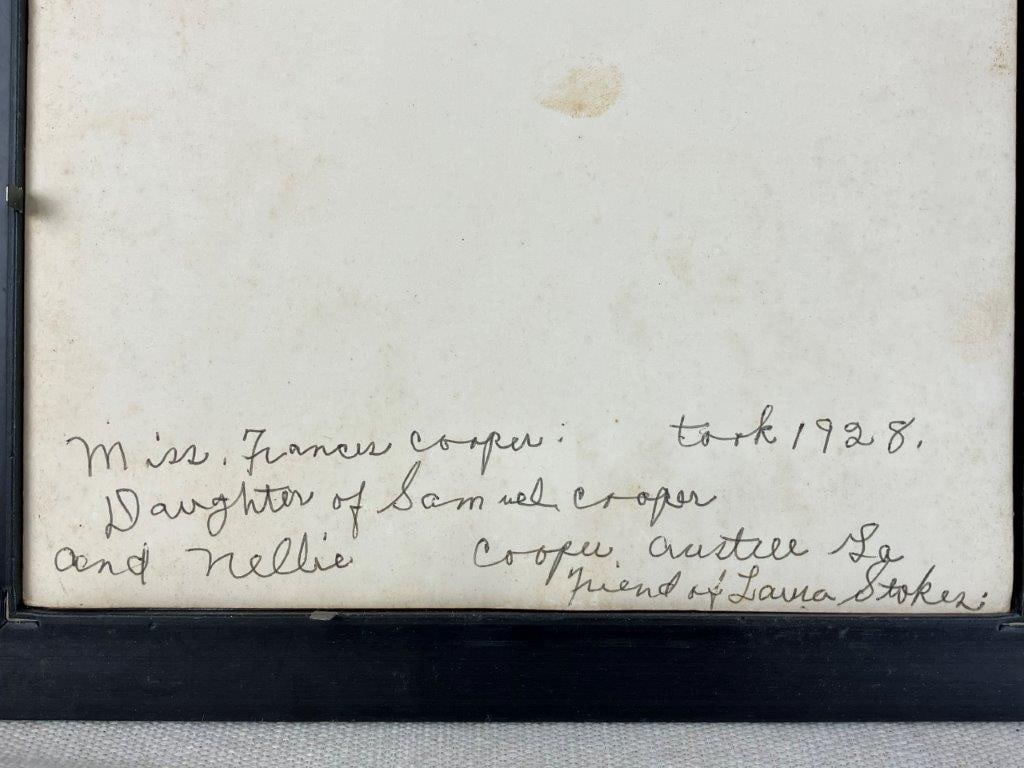 Miss. Frances Cooper: took 1928.
Daughter of Samuel Cooper
and Nellie Cooper Austell Ga
Friend of Laura Stokes: